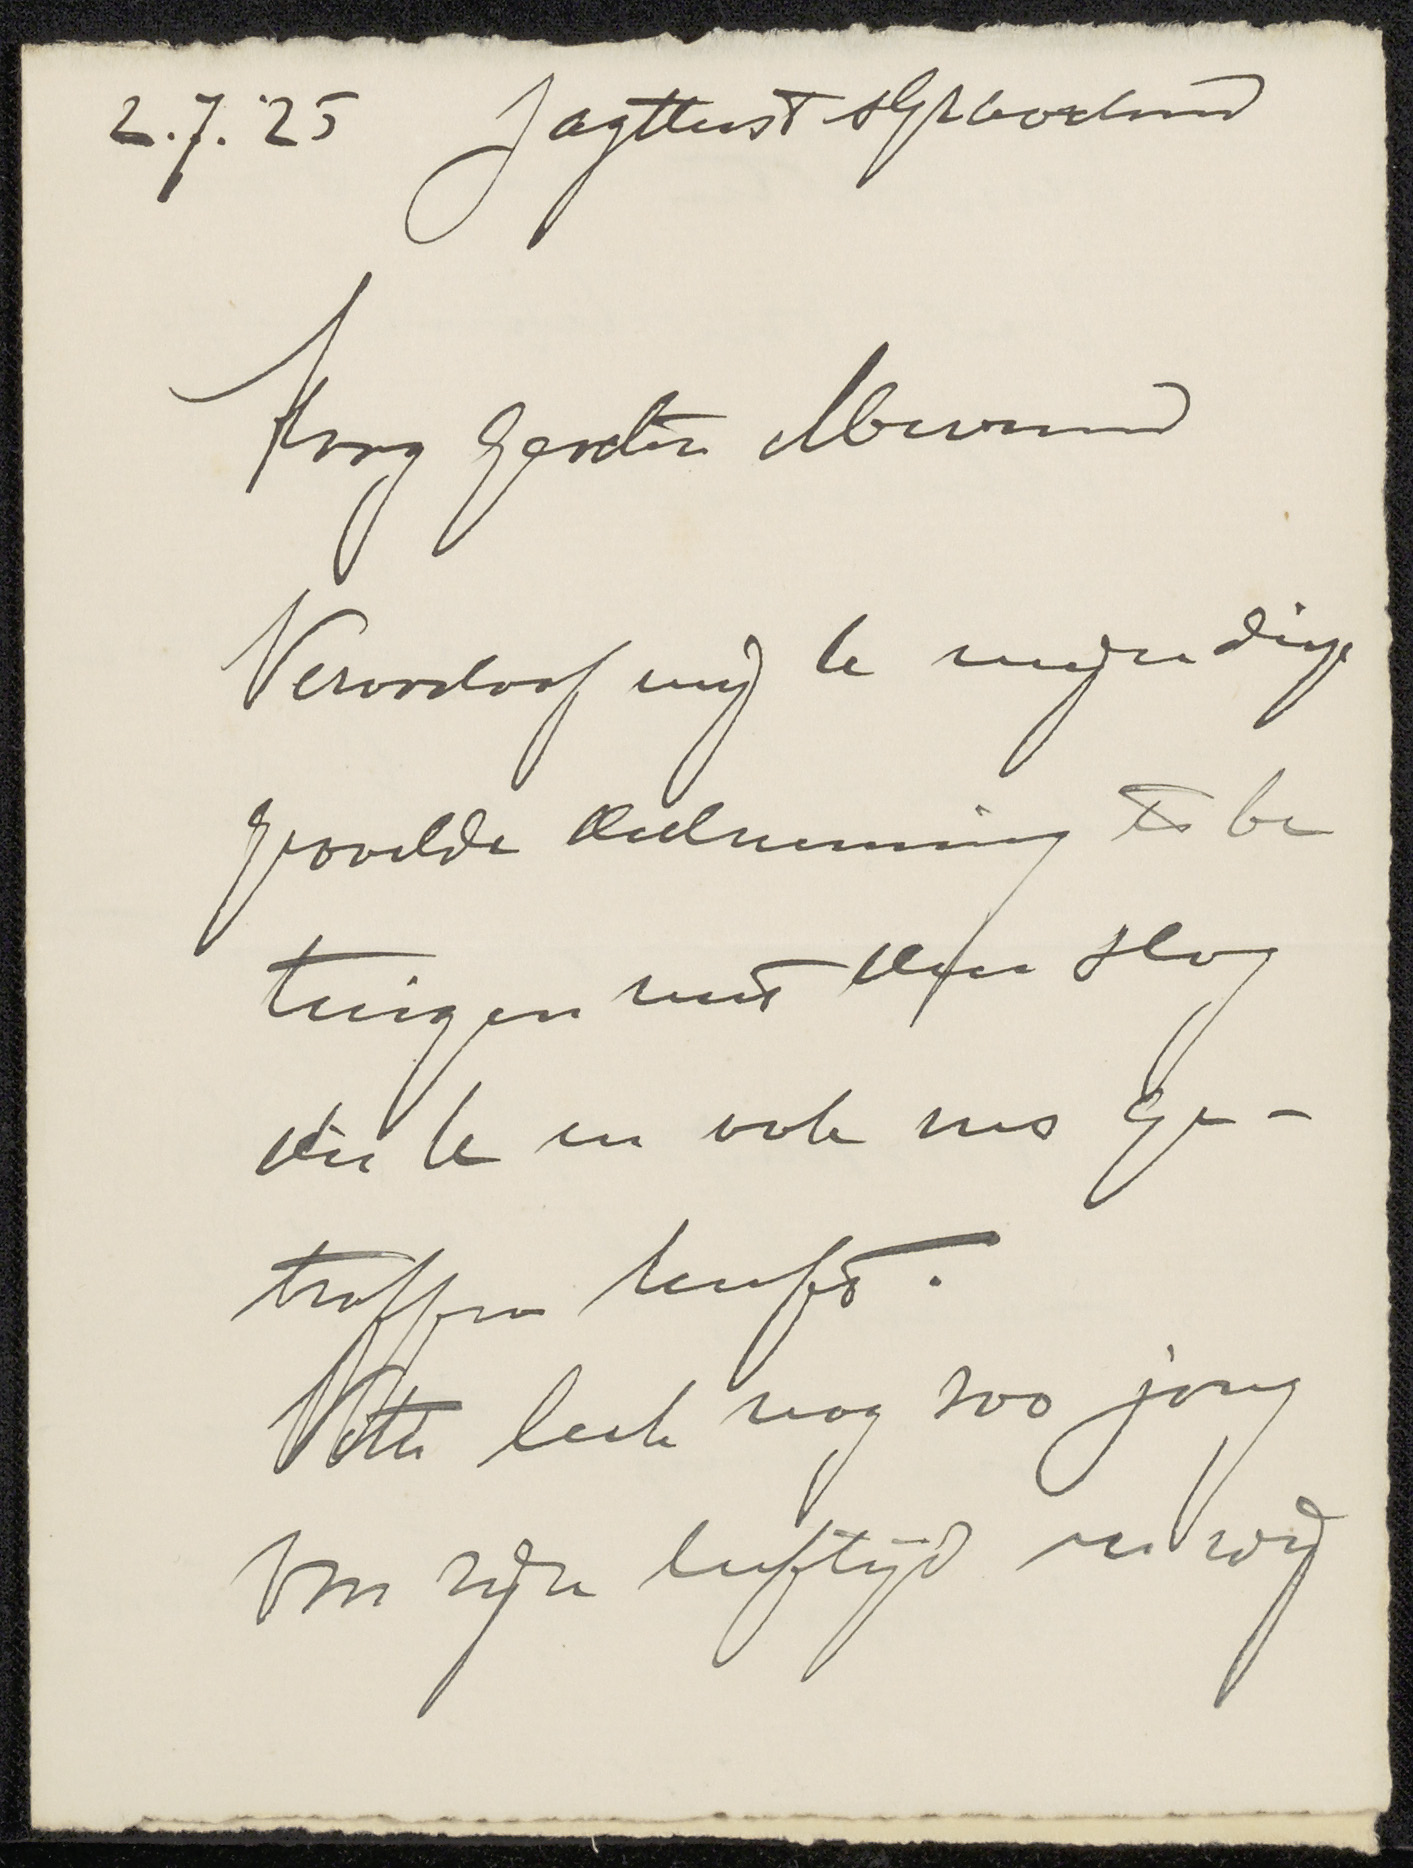 2.7.'25 Jagtlust 's Graveland
Hoog geachte Mevrouw
Veroorloof mij U mijn diep
gevoelde deelneming te be
tuigen met den slag
die U en ook ons ge-
troffen heeft.
Veth leek nog zoo jong
van zijn leeftijd en wij